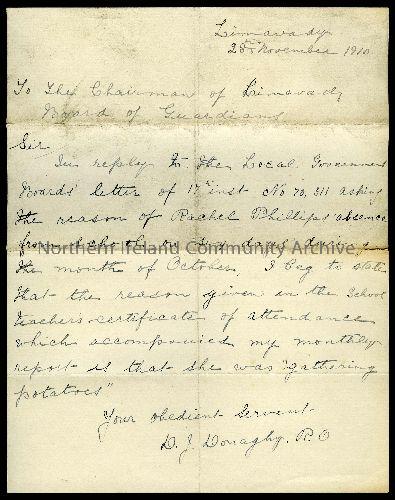 Limavady
28th November 1910
To The Chairman of Limavady
Board of Guardians
Sir
In reply to the Local Government
Boards' letter of 17th inst No 70,311 asking
the reason of Rachel Phillips absence
from school on days during
Northern Ireland Community Archive
the month of October, I beg to state
that the reason given in the School
teacher's certificate of attendance
which accompanies my monthly
report is that she was "gathering
potatoes"
Your obedient Servent
D. J. Donaghy. R.O